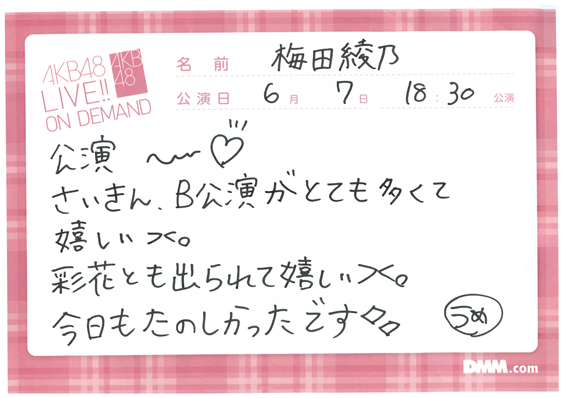 AKB48
LIVE!!
ON DEMAND
AKB
48
名前 梅田綾乃
公演日 6月 7日 18:30 公演
公演 〜〜♡
さいきん、B公演がとても多くて
嬉しい><。
彩花とも出られて嬉しい><。
今日もたのしかったです
うめ
DMM.com